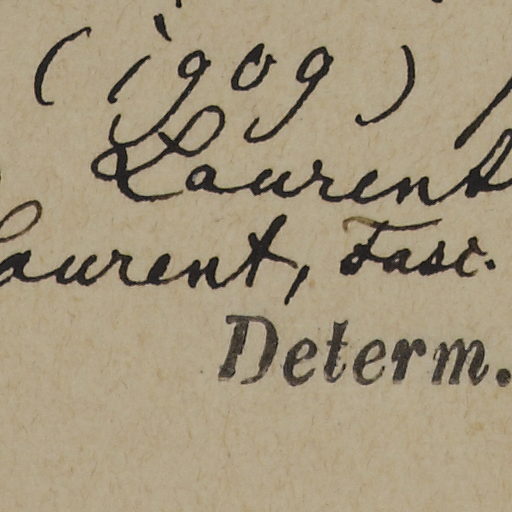 (1909)
Laurent
Laurent, Fasc.
Determ.